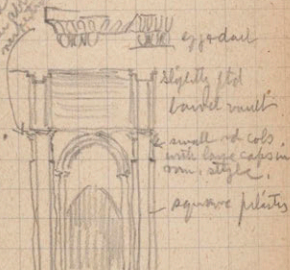 egg & dart
slightly ptd
barrel vault
small rd cols.
with large caps in
rom. style.
square pilasters